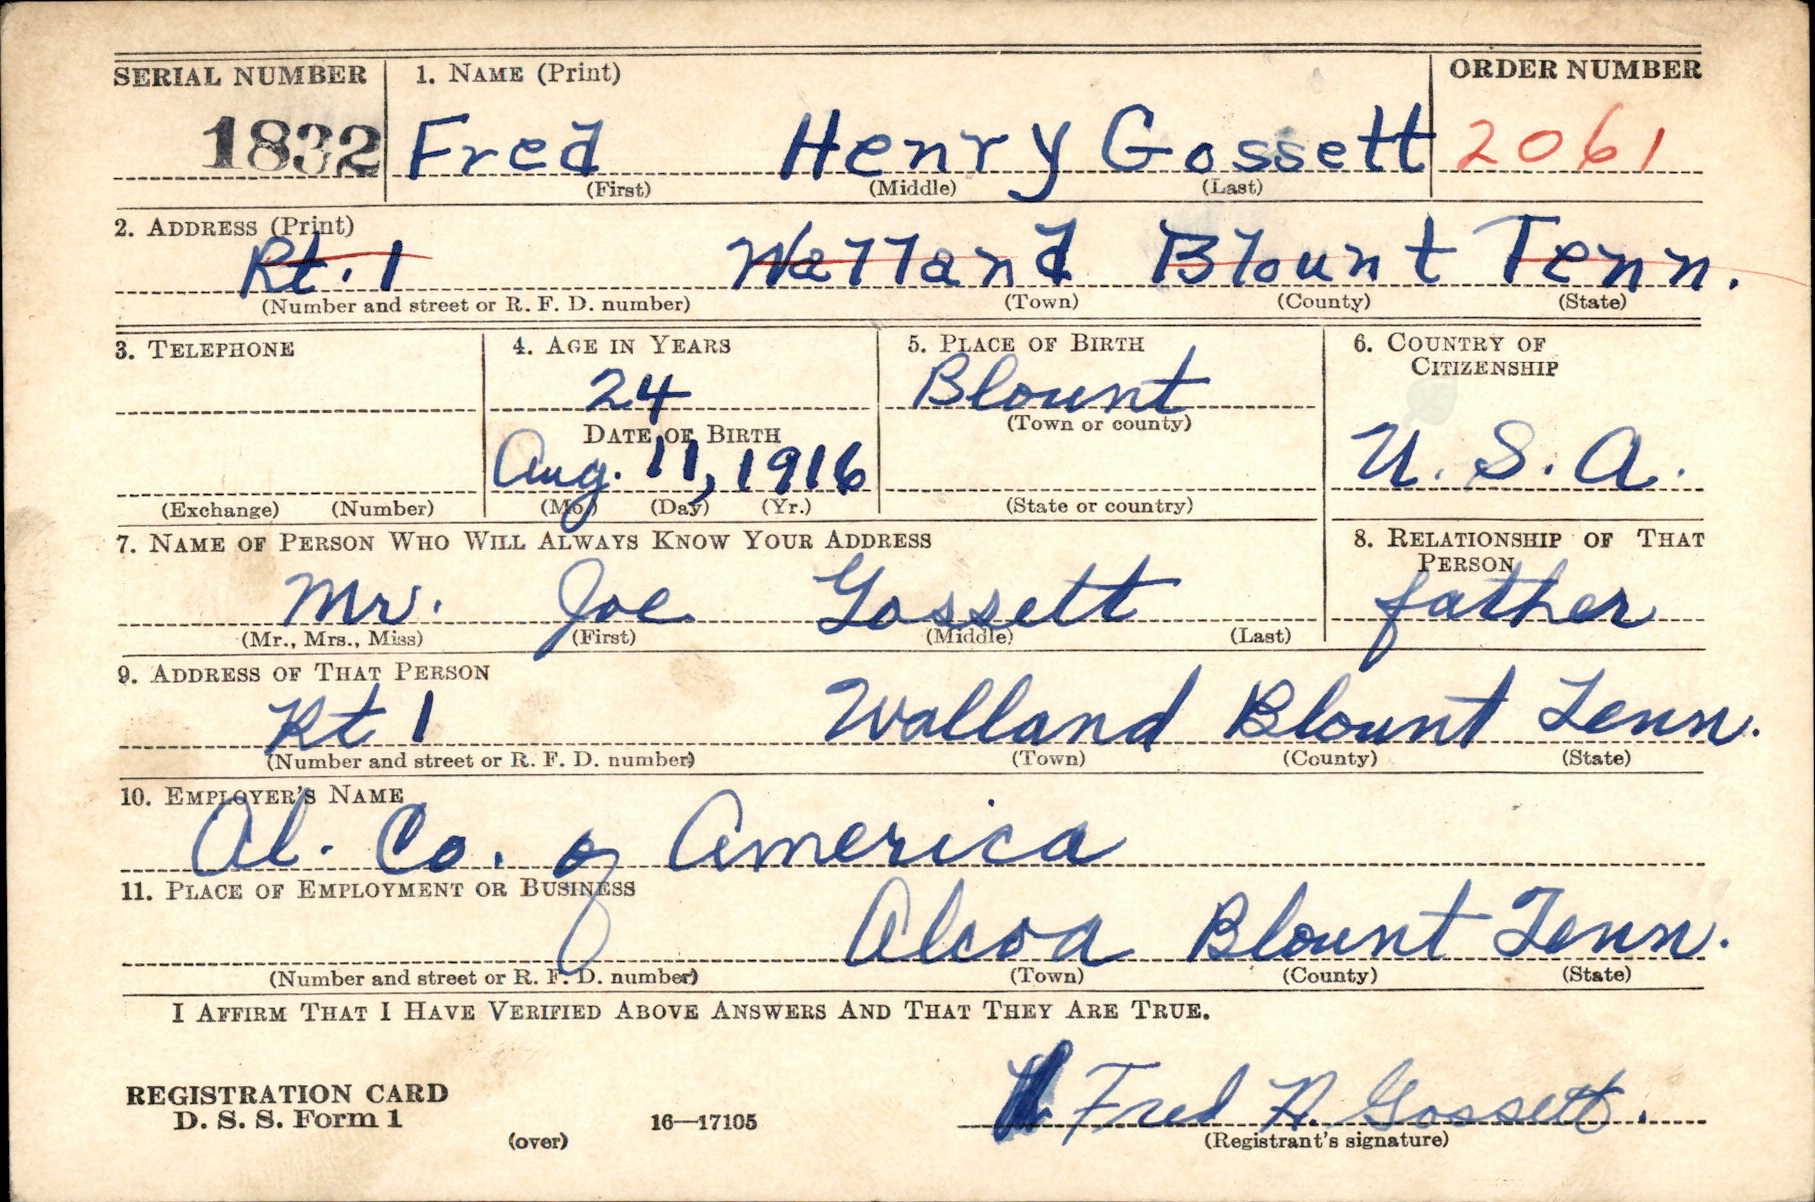 SERIAL NUMBER 1. NAME (Print) ORDER NUMBER
1832 Fred Henry Gossett 2061
(First) (Middle) (Last)
2. ADDRESS (Print)
Rt. 1 Walland Blount Tenn.
(Number and street or R. F. D. number) (Town) (County) (State)
3. TELEPHONE 4. AGE IN YEARS 5. PLACE OF BIRTH 6. COUNTRY OF CITIZENSHIP
24 Blount
DATE OF BIRTH (Town or county)
Aug. 11, 1916 U. S. A.
(Exchange) (Number) (Mo.) (Day) (Yr.) (State or country)
7. NAME OF PERSON WHO WILL ALWAYS KNOW YOUR ADDRESS 8. RELATIONSHIP OF THAT PERSON
Mr. Joe Gossett father
(Mr., Mrs., Miss) (First) (Middle) (Last)
9. ADDRESS OF THAT PERSON
Rt 1 Walland Blount Tenn.
(Number and street or R. F. D. number) (Town) (County) (State)
10. EMPLOYER'S NAME
Al. Co. of America
11. PLACE OF EMPLOYMENT OR BUSINESS
Alcoa Blount Tenn.
(Number and street or R. F. D. number) (Town) (County) (State)
I AFFIRM THAT I HAVE VERIFIED ABOVE ANSWERS AND THAT THEY ARE TRUE.
REGISTRATION CARD
D. S. S. Form 1 Fred H. Gossett.
(over) 16—17105 (Registrant's signature)